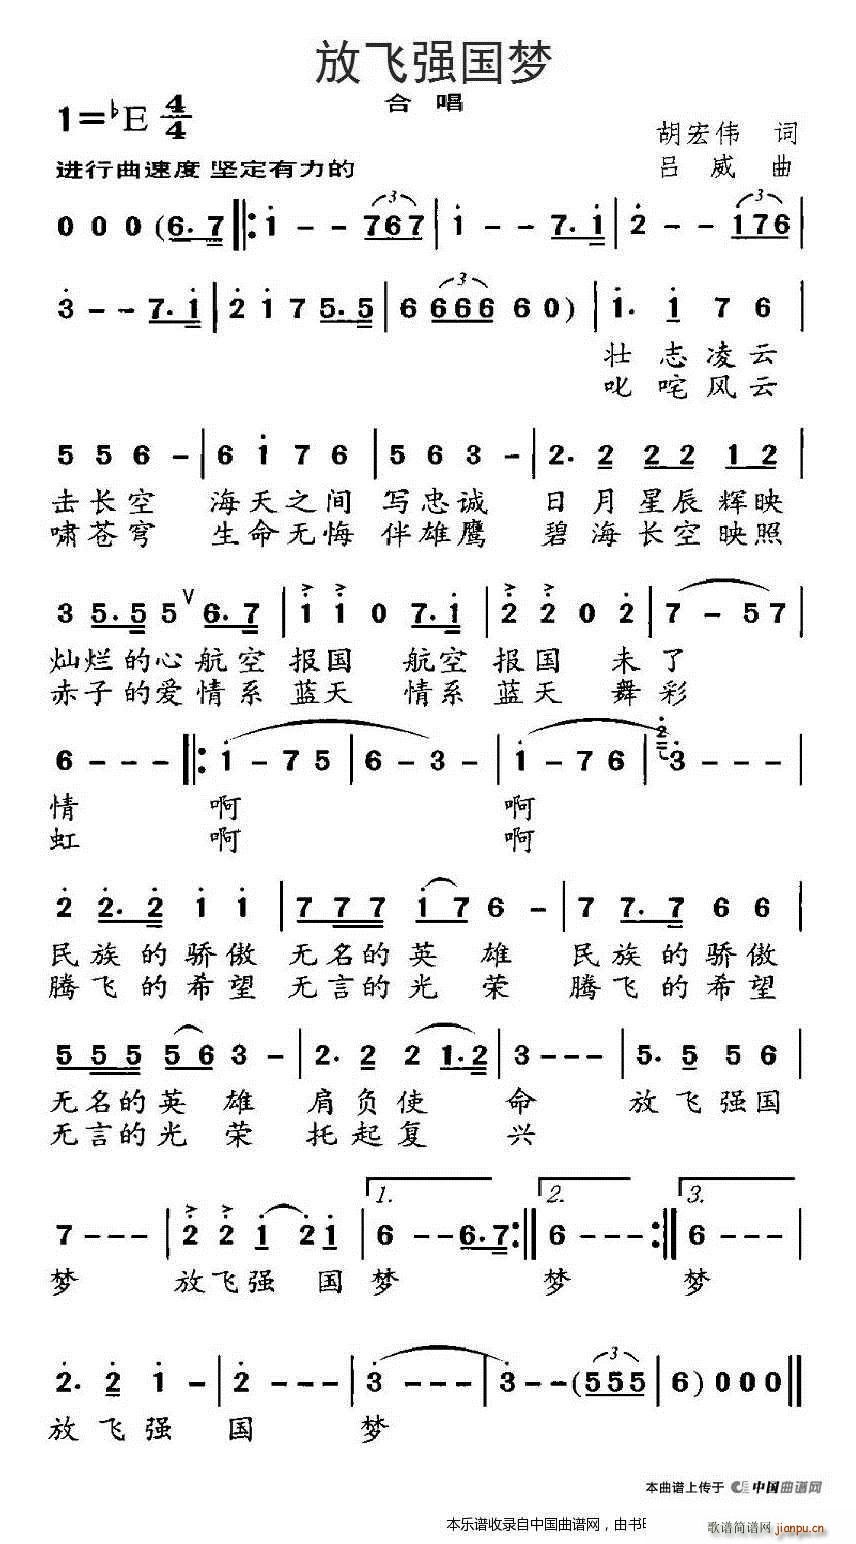 放飞强国梦
合 唱
1=♭E 4/4
胡宏伟 词
进行曲速度 坚定有力的
吕 威 曲
0 0 0 (6. 7 ‖: i - - 7 6 7 | i - - 7. i | 2 - - i 7 6 |
3 - - 7. i | 2 i 7 5. 5 | 6 6 6 6 6 0) | i. i 7 6 |
壮 志 凌 云
叱 咤 风 云
5 5 6 - | 6 i 7 6 | 5 6 3 - | 2. 2 2 2 1 2 |
击 长 空 海 天 之 间 写 忠 诚 日 月 星 辰 辉 映
啸 苍 穹 生 命 无 悔 伴 雄 鹰 碧 海 长 空 映 照
3 5. 5 5 ∨ 6. 7 | i i 0 7. i | 2 2 0 2 | 7 - 5 7 |
灿 烂 的 心 航 空 报 国 航 空 报 国 未 了
赤 子 的 爱 情 系 蓝 天 情 系 蓝 天 舞 彩
6 - - - ‖: i - 7 5 | 6 - 3 - | i - 7 6 | 2 3 - - - |
情 啊 啊
虹 啊 啊
2 2. 2 i i | 7 7 7 i 7 6 - | 7 7. 7 6 6 |
民 族 的 骄 傲 无 名 的 英 雄 民 族 的 骄 傲
腾 飞 的 希 望 无 言 的 光 荣 腾 飞 的 希 望
5 5 5 5 6 3 - | 2. 2 2 1. 2 | 3 - - - | 5. 5 5 6 |
无 名 的 英 雄 肩 负 使 命 放 飞 强 国
无 言 的 光 荣 托 起 复 兴
1. 2. 3.
7 - - - | 2 2 i 2 i | 6 - - 6. 7 :‖ 6 - - - :‖ 6 - - - |
梦 放 飞 强 国 梦 梦 梦
2. 2 i - | 2 - - - | 3 - - - | 3 - - (5 5 5 | 6) 0 0 0 ‖
放 飞 强 国 梦
本曲谱上传于 中国曲谱网
本乐谱收录自中国曲谱网，由书
歌谱简谱网 jianpu.cn